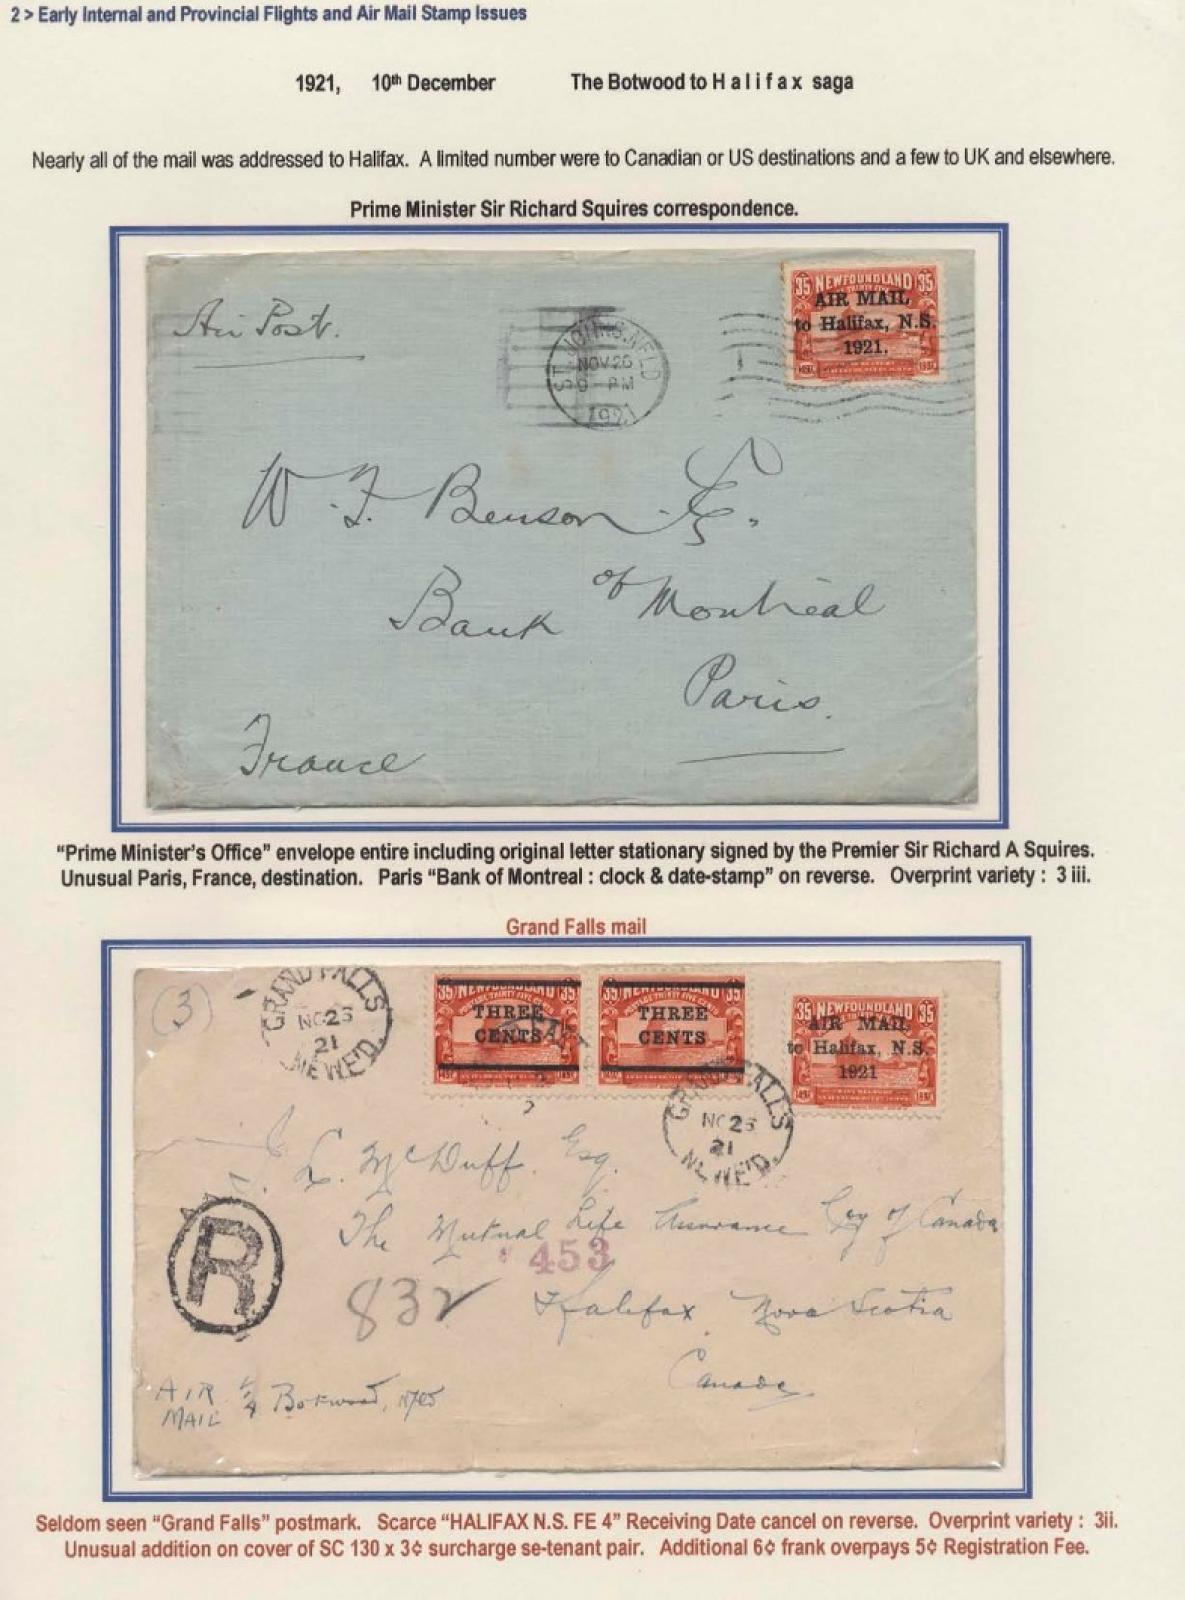 2 > Early Internal and Provincial Flights and Air Mail Stamp Issues
1921, 10th December The Botwood to Halifax saga
Nearly all of the mail was addressed to Halifax. A limited number were to Canadian or US destinations and a few to UK and elsewhere.
Prime Minister Sir Richard Squires correspondence.
Air Post.
ST. JOHN'S. NFLD
NOV 26
9 - PM
1921
35 NEWFOUNDLAND 35
AIR MAIL
to Halifax, N.S.
1921.
W. F. Benson Esq.
Bank of Montreal
Paris.
France
“Prime Minister’s Office” envelope entire including original letter stationary signed by the Premier Sir Richard A Squires.
Unusual Paris, France, destination. Paris “Bank of Montreal : clock & date-stamp” on reverse. Overprint variety : 3 iii.
Grand Falls mail
(3)
GRAND FALLS
21
NEWF'D.
35 NEWFOUNDLAND 35
THREE
CENTS
35 NEWFOUNDLAND 35
THREE
CENTS
35 NEWFOUNDLAND 35
AIR MAIL
to Halifax, N.S.
1921
GRAND FALLS
21
NEWF'D.
L. McDuff. Esq.
The Mutual Life Assurance Coy of Canada
453
R
832
Halifax Nova Scotia
Canada.
AIR
MAIL
Botwood, Nfld
Seldom seen “Grand Falls” postmark. Scarce “HALIFAX N.S. FE 4” Receiving Date cancel on reverse. Overprint variety : 3ii.
Unusual addition on cover of SC 130 x 3¢ surcharge se-tenant pair. Additional 6¢ frank overpays 5¢ Registration Fee.